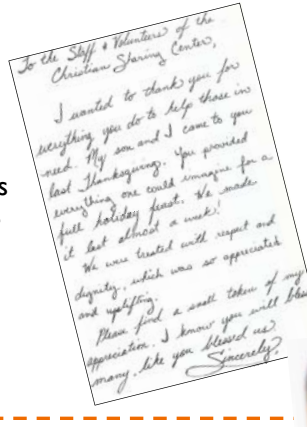 To the Staff & Volunteers of the
Christian Sharing Center,
I wanted to thank you for
everything you do to help those in
need. My son and I came to you
last Thanksgiving. You provided
everything one could imagine for a
full holiday feast. We made
it last almost a week!
We were treated with respect and
dignity, which was so appreciated
and uplifting.
Please find a small token of my
appreciation. I know you will bless
many, like you blessed us.
Sincerely,
s